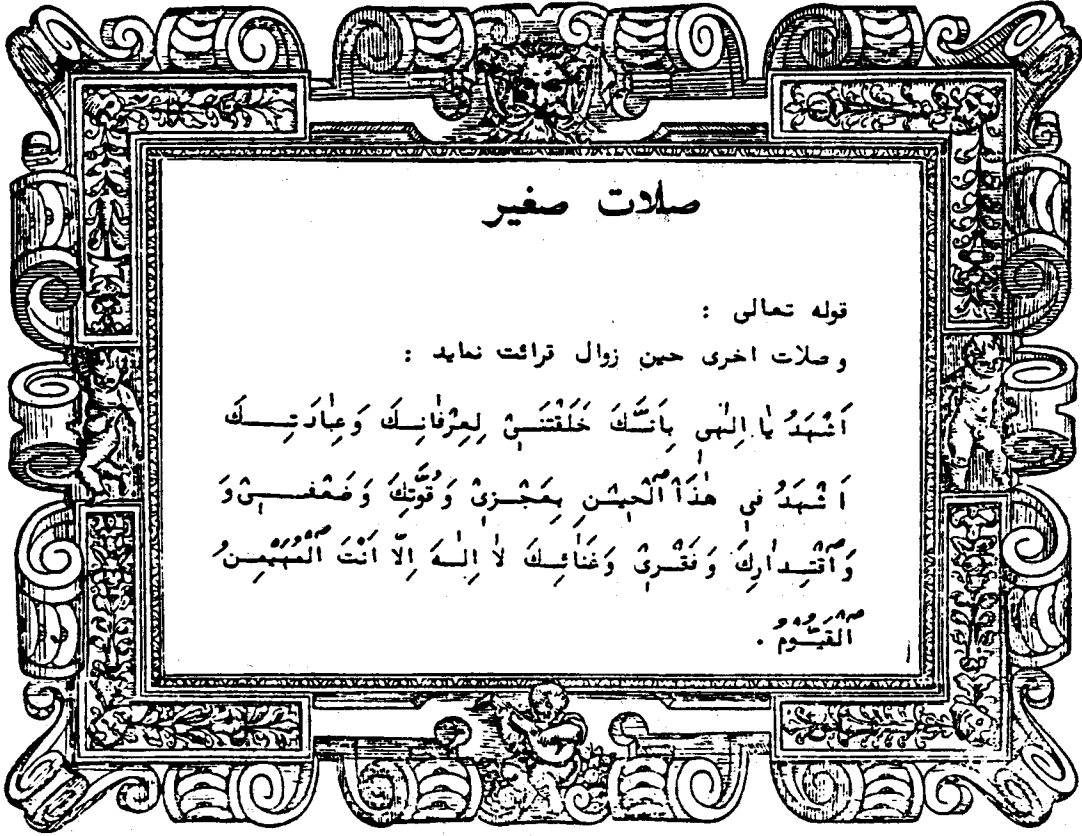 صلات صغیر
قوله تعالی :
و صلات اخری حین زوال قرائت نماید :
اَشْهَدُ یٰا اِلٰهیٖ بِاَنَّكَ خَلَقْتَنیٖ لِعِرْفٰانِكَ وَعِبٰادَتِكَ
اَشْهَدُ فیٖ هٰذَا ٱلْحیٖنِ بِعَجْزیٖ وَ قُوَّتِكَ وَ ضَعْفیٖ وَ
وَٱقْتِدٰارِكَ وَ فَقْریٖ وَ غَنٰائِكَ لٰا اِلٰهَ اِلّا اَنْتَ ٱلْمُهَیْمِنُ
ٱلْقَیُّوْمُ .